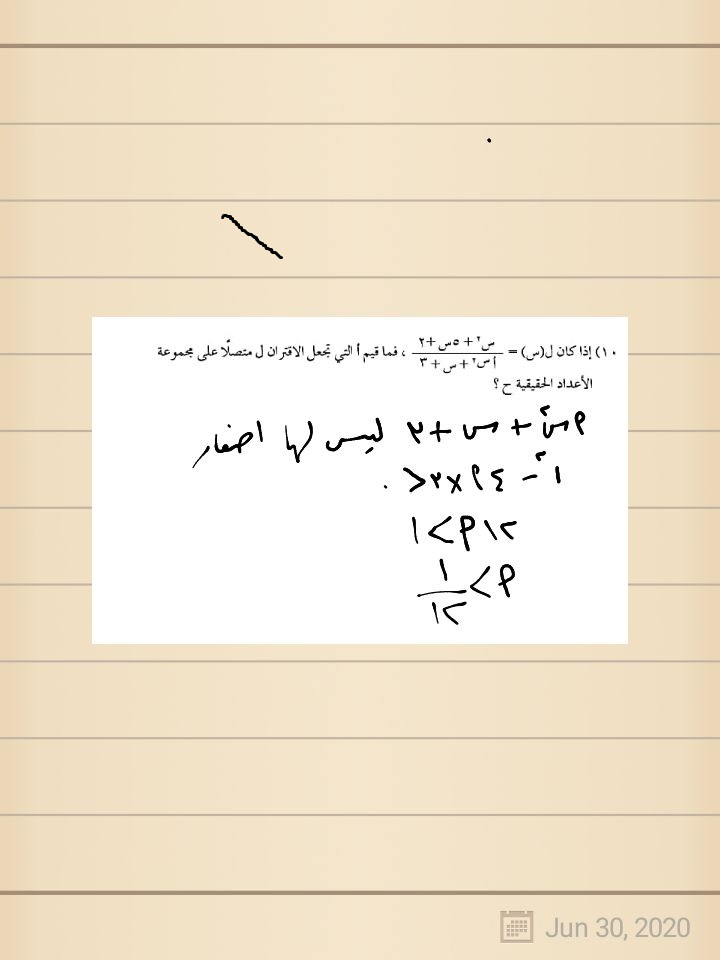 ١٠) إذا كان ل(س) = (س٢ + ٥س + ٢) / (أس٢ + س + ٣) ، فما قيم أ التي تجعل الاقتران ل متصلًا على مجموعة
الأعداد الحقيقية ح ؟
٩س٢ + س + ٣ ليس لها اصفار
١٢ - ٤ ٩ × ٣ < ٠
١٢ ٩ > ١
٩ > ١/١٢
Jun 30, 2020